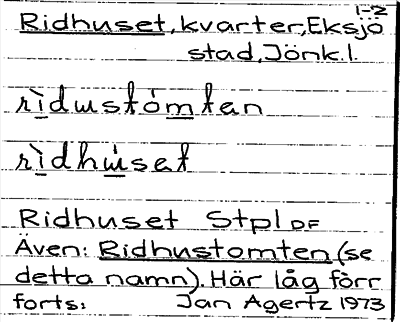 1-2
Ridhuset, kvarter, Eksjö
stad, Jönk. l.
rìdustómtan
rìdhùset
Ridhuset Stpl DF
Även: Ridhustomten (se
detta namn). Här låg förr
forts: Jan Agertz 1973